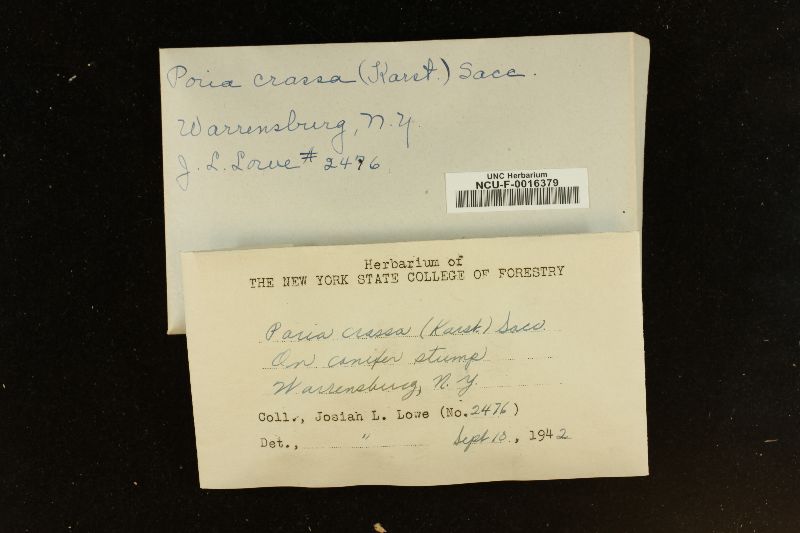 Poria crassa (Karst.) Sacc.
Warrensburg, N.Y.
J. L. Lowe # 2476
UNC Herbarium
NCU-F-0016379
Herbarium of
THE NEW YORK STATE COLLEGE OF FORESTRY
Poria crassa (Karst.) Sacc
On conifer stump
Warrensburg, N.Y.
Coll., Josiah L. Lowe (No. 2476)
Det., " Sept 13., 1942